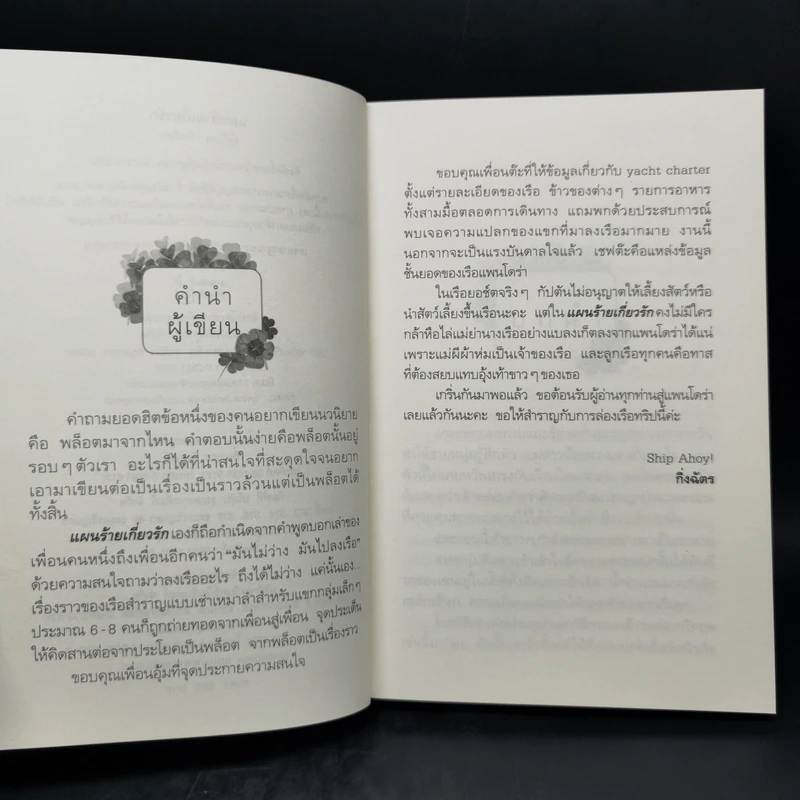 คำนำ
ผู้เขียน
คำถามยอดฮิตข้อหนึ่งของคนอยากเขียนนวนิยาย
คือ พล็อตมาจากไหน คำตอบนั้นง่ายคือพล็อตนั้นอยู่
รอบๆ ตัวเรา อะไรก็ได้ที่น่าสนใจที่สะดุดใจจนอยาก
เอามาเขียนต่อเป็นเรื่องเป็นราวล้วนแต่เป็นพล็อตได้
ทั้งสิ้น
แผนร้ายเกี่ยวรัก เองก็ถือกำเนิดจากคำพูดบอกเล่าของ
เพื่อนคนหนึ่งถึงเพื่อนอีกคนว่า "มันไม่ว่าง มันไปลงเรือ"
ด้วยความสนใจถามว่าลงเรืออะไร ถึงได้ไม่ว่าง แค่นั้นเอง...
เรื่องราวของเรือสำราญแบบเช่าเหมาลำสำหรับแขกกลุ่มเล็กๆ
ประมาณ 6-8 คนก็ถูกถ่ายทอดจากเพื่อนสู่เพื่อน จุดประเด็น
ให้คิดสานต่อจากประโยคเป็นพล็อต จากพล็อตเป็นเรื่องราว
ขอบคุณเพื่อนอุ้มที่จุดประกายความสนใจ
ขอบคุณเพื่อนต๊ะที่ให้ข้อมูลเกี่ยวกับ yacht charter
ตั้งแต่รายละเอียดของเรือ ข้าวของต่างๆ รายการอาหาร
ทั้งสามมื้อตลอดการเดินทาง แถมพกด้วยประสบการณ์
พบเจอความแปลกของแขกที่มาลงเรือมากมาย งานนี้
นอกจากจะเป็นแรงบันดาลใจแล้ว เชฟต๊ะคือแหล่งข้อมูล
ชั้นยอดของเรือแพนโดร่า
ในเรือยอช์ตจริงๆ กัปตันไม่อนุญาตให้เลี้ยงสัตว์หรือ
นำสัตว์เลี้ยงขึ้นเรือนะคะ แต่ใน แผนร้ายเกี่ยวรัก คงไม่มีใคร
กล้าหือไล่แม่ย่านางเรืออย่างแบลงเก็ตลงจากแพนโดร่าได้แน่
เพราะแม่ผีผ้าห่มเป็นเจ้าของเรือ และลูกเรือทุกคนคือทาส
ที่ต้องสยบแทบอุ้งเท้าขาวๆ ของเธอ
เกริ่นกันมาพอแล้ว ขอต้อนรับผู้อ่านทุกท่านสู่แพนโดร่า
เลยแล้วกันนะคะ ขอให้สำราญกับการล่องเรือทริปนี้ค่ะ
Ship Ahoy!
กิ่งฉัตร